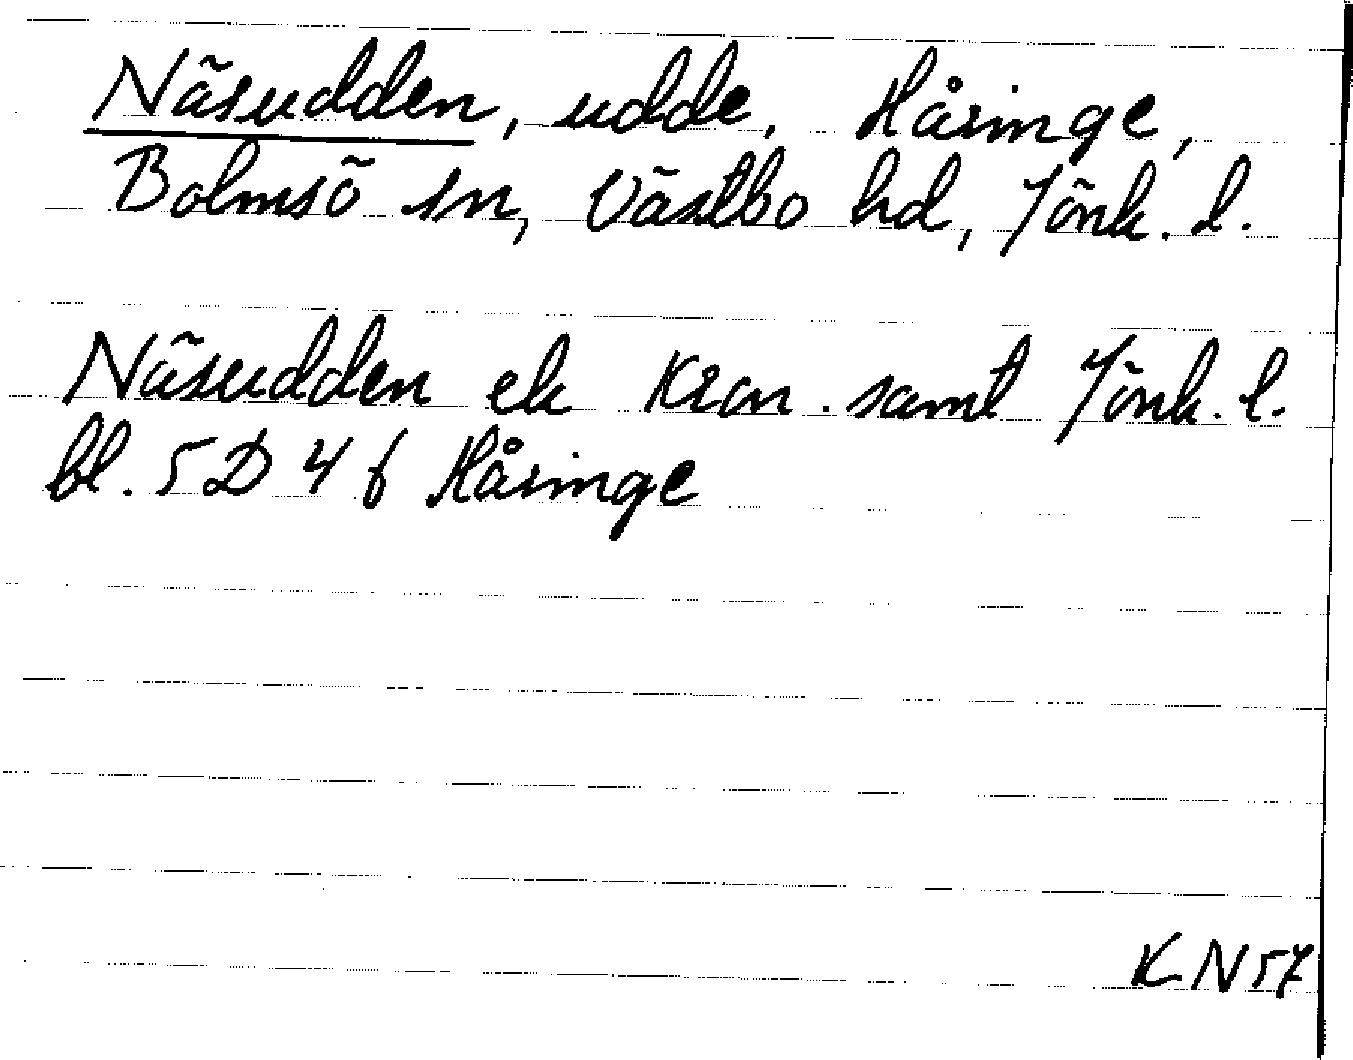 Näsudden, udde, Håringe,
Bolmsö sn, Västbo hd, Jönk. l.
Näsudden ek Kron. samt Jönk. l.
bl. 5D 4 f Håringe
KN57